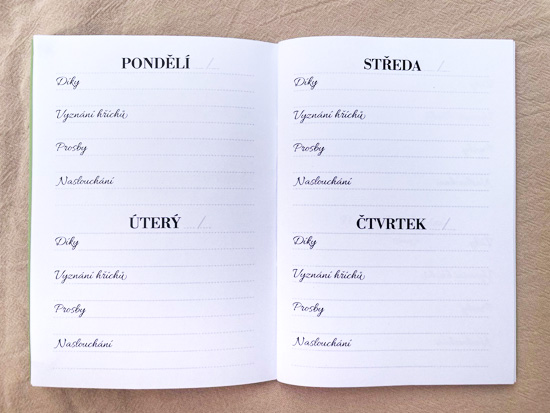 PONDĚLÍ ..../....
Díky
Vyznání hříchů
Prosby
Naslouchání
ÚTERÝ ..../....
Díky
Vyznání hříchů
Prosby
Naslouchání
STŘEDA ..../....
Díky
Vyznání hříchů
Prosby
Naslouchání
ČTVRTEK ..../....
Díky
Vyznání hříchů
Prosby
Naslouchání